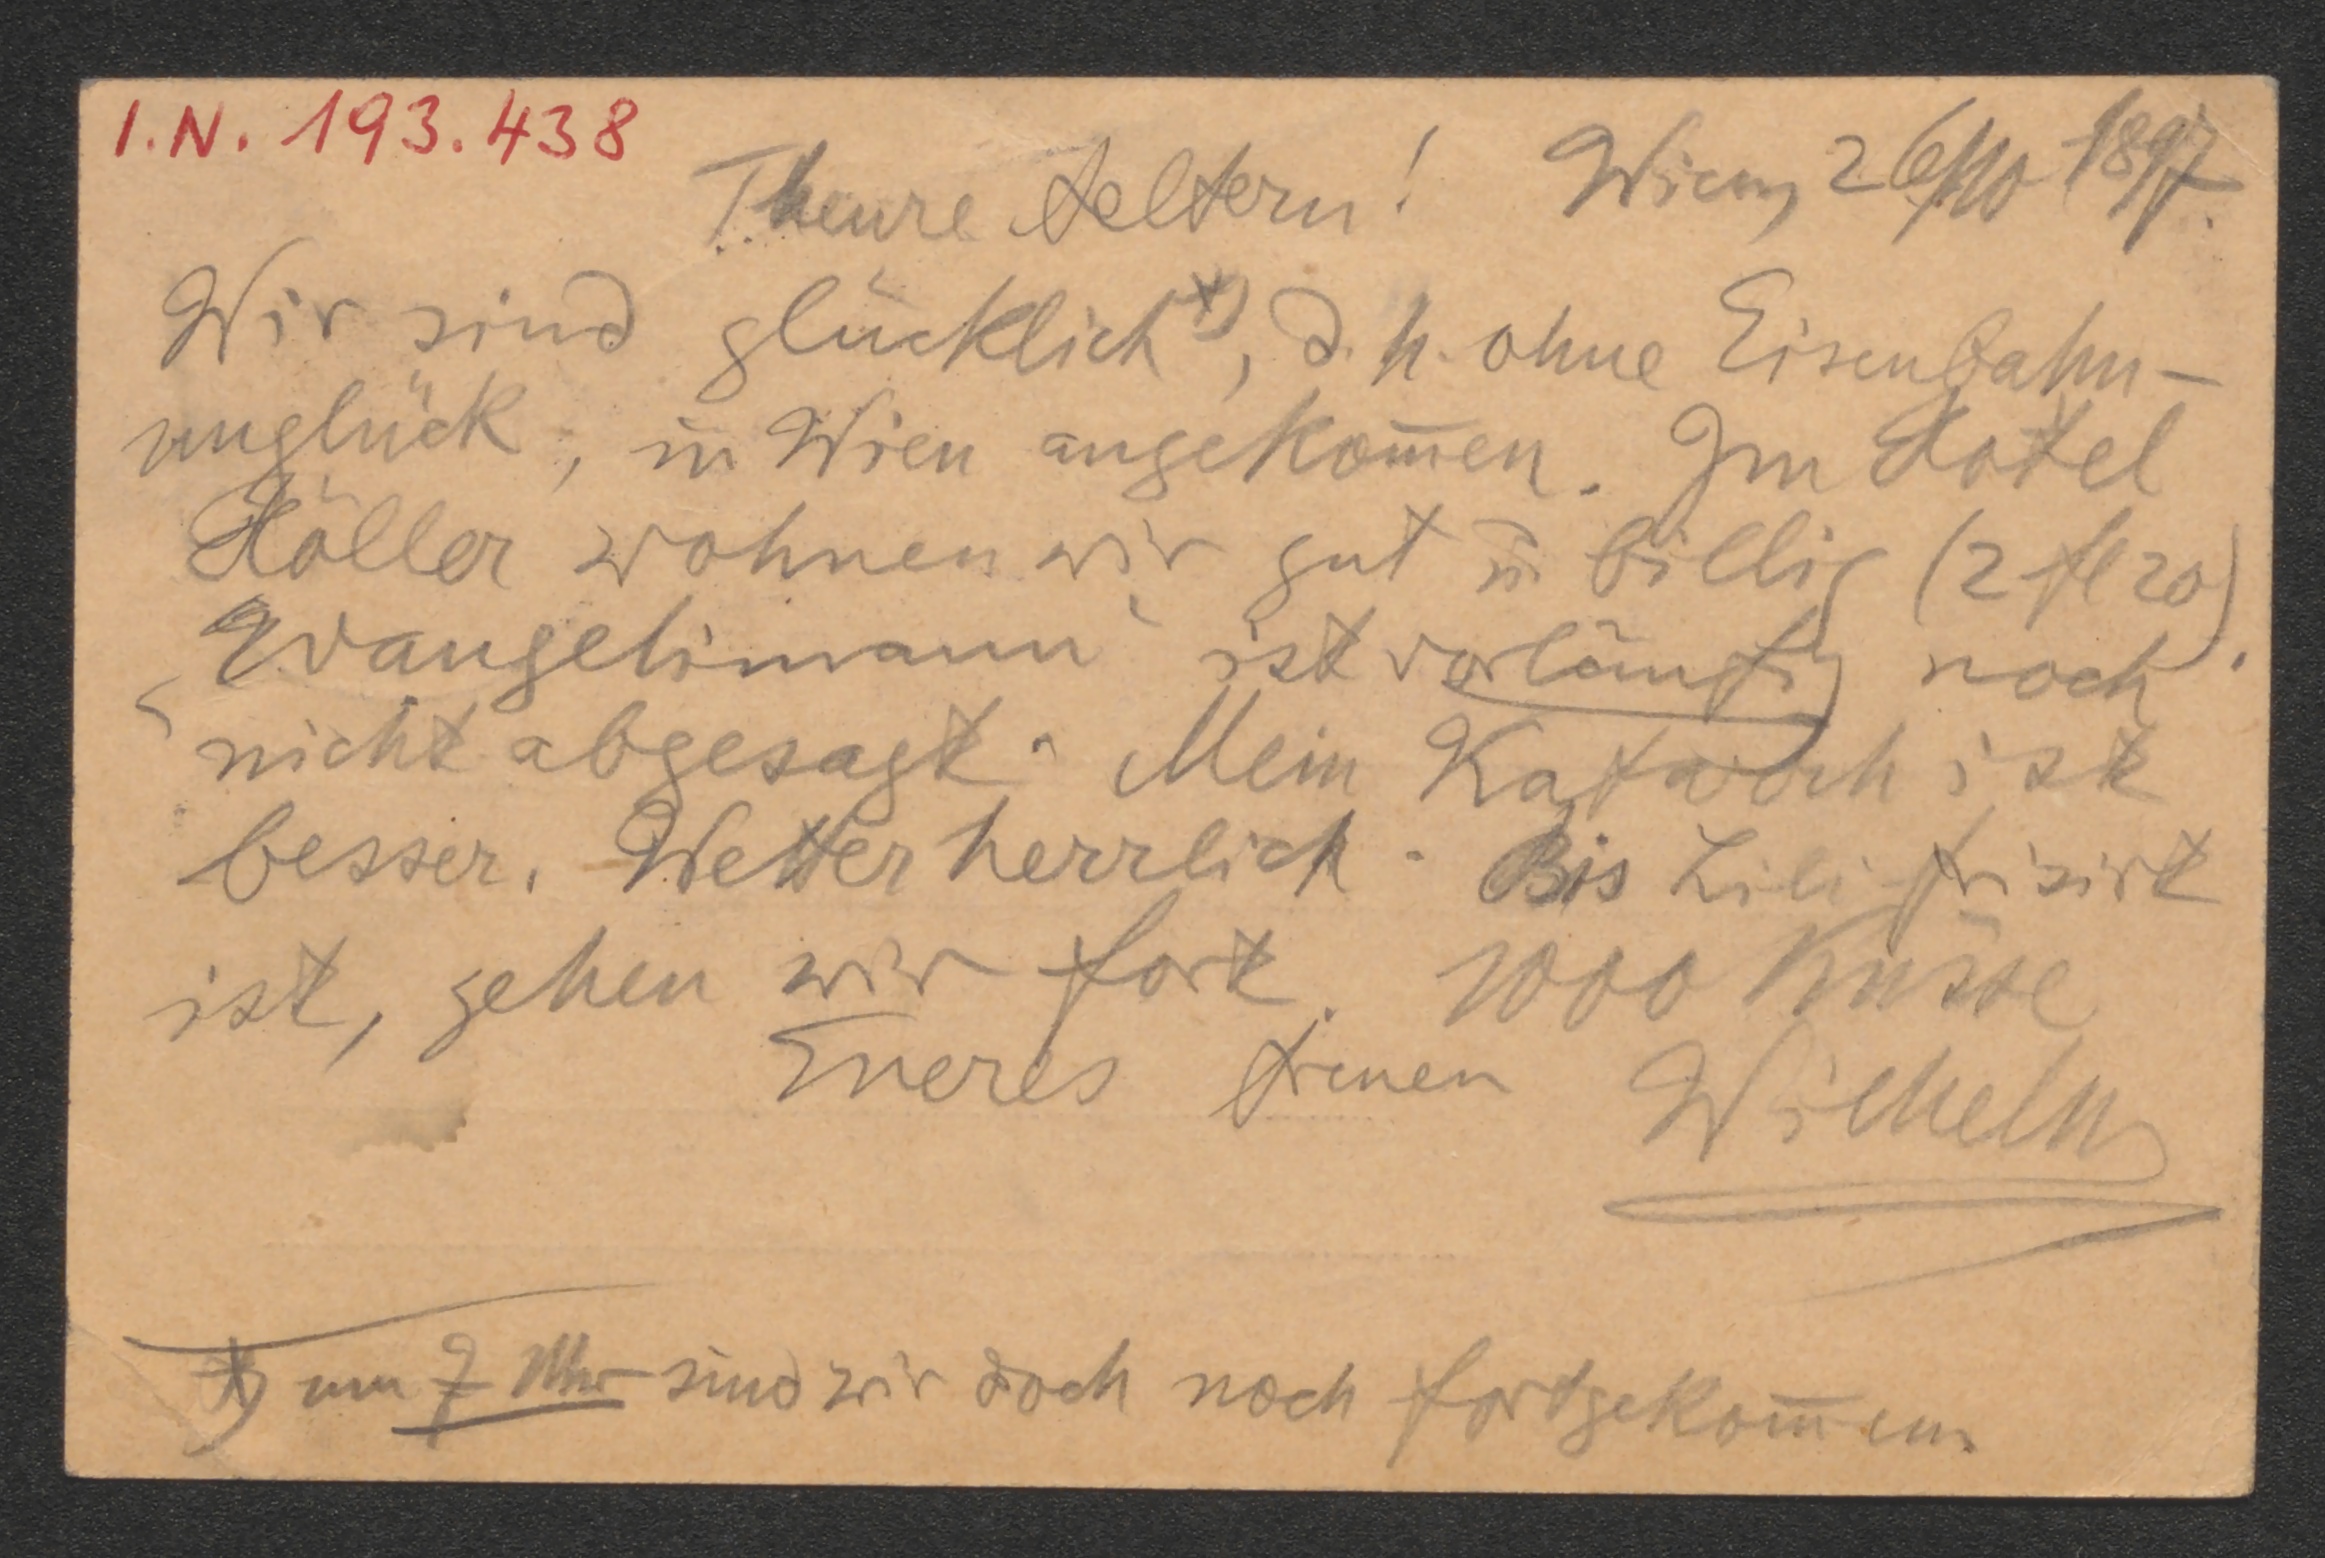 I.N. 193.438
Theure Aeltern! Wien, 26/10 1897.
Wir sind glücklich *), d. h. ohne Eisenbahn-
unglück, in Wien angekom̅en. Im Hotel
Höller wohnen wir gut u̅ billig (2 fl 20).
„Evangelimann“ ist vorläufig noch
nicht abgesagt. Mein Katarrh ist
besser. Wetter herrlich. Bis Lili frisirt
ist, gehen wir fort. 1000 Küsse
Eueres treuen Wilhelm
*) um 7 Uhr sind wir doch noch fortgekom̅en.